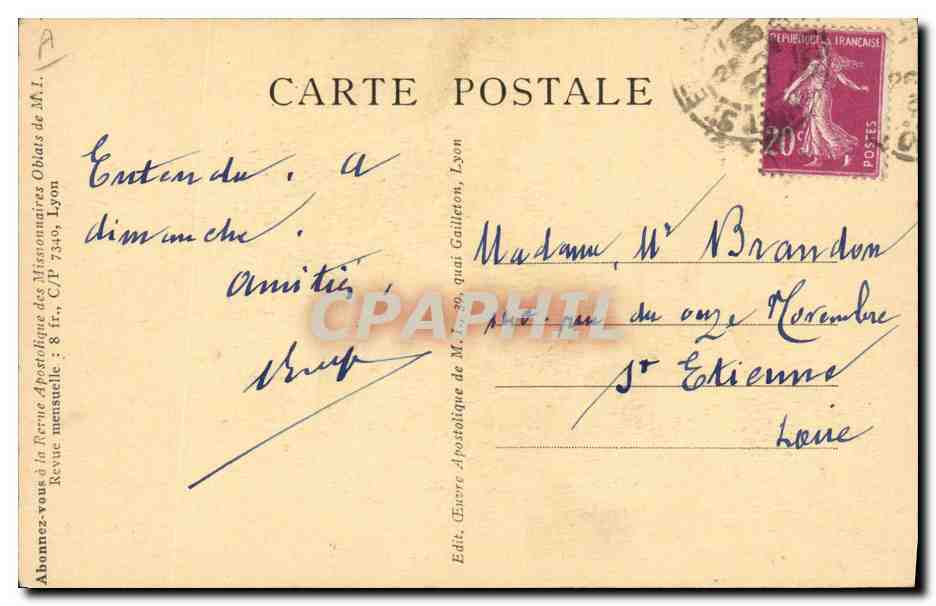 A
CARTE POSTALE
REPUBLIQUE FRANCAISE
20c
POSTES
Entendu. A
dimanche.
Amitiés,
Madame, Mr Brandon
rue du onze Novembre
St Etienne
Loire
Abonnez-vous à la Revue Apostolique des Missionnaires Oblats de M. I.
Revue mensuelle : 8 fr., C/P 7340, Lyon
Edit. Œuvre Apostolique de M. I., 39, quai Gailleton, Lyon
CPAPHIL